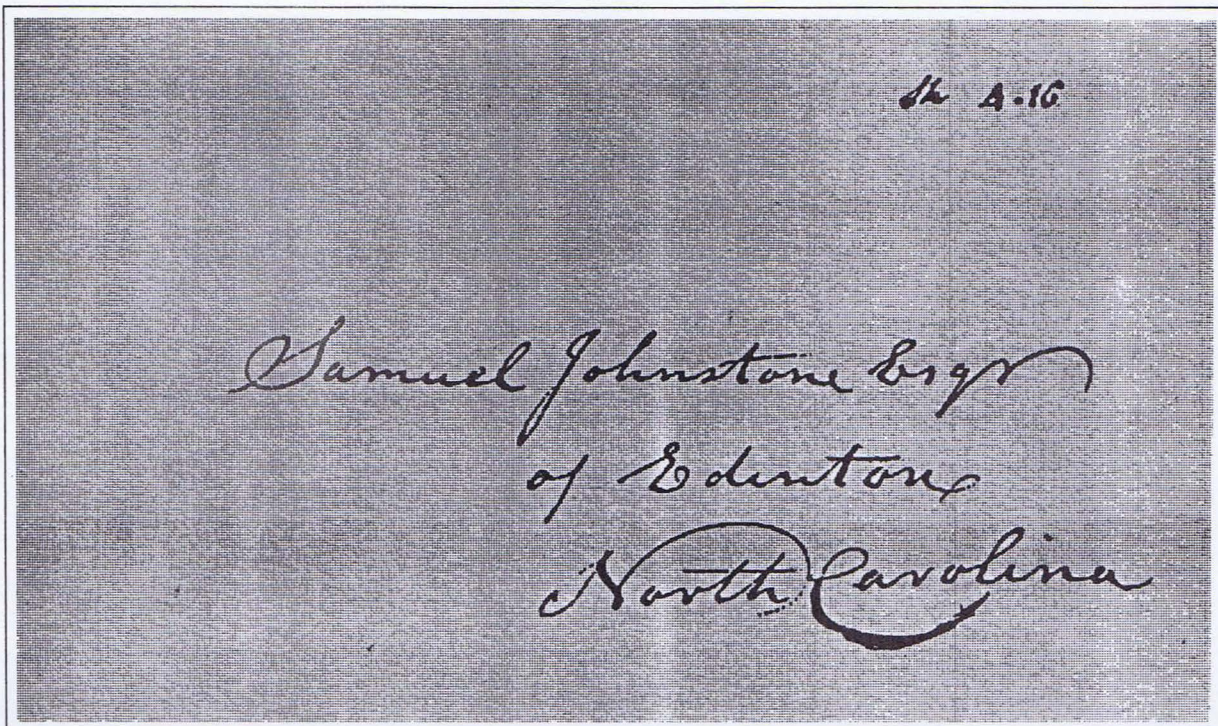 Sh 4.16
Samuel Johnstone Esqr
of Edenton
North Carolina